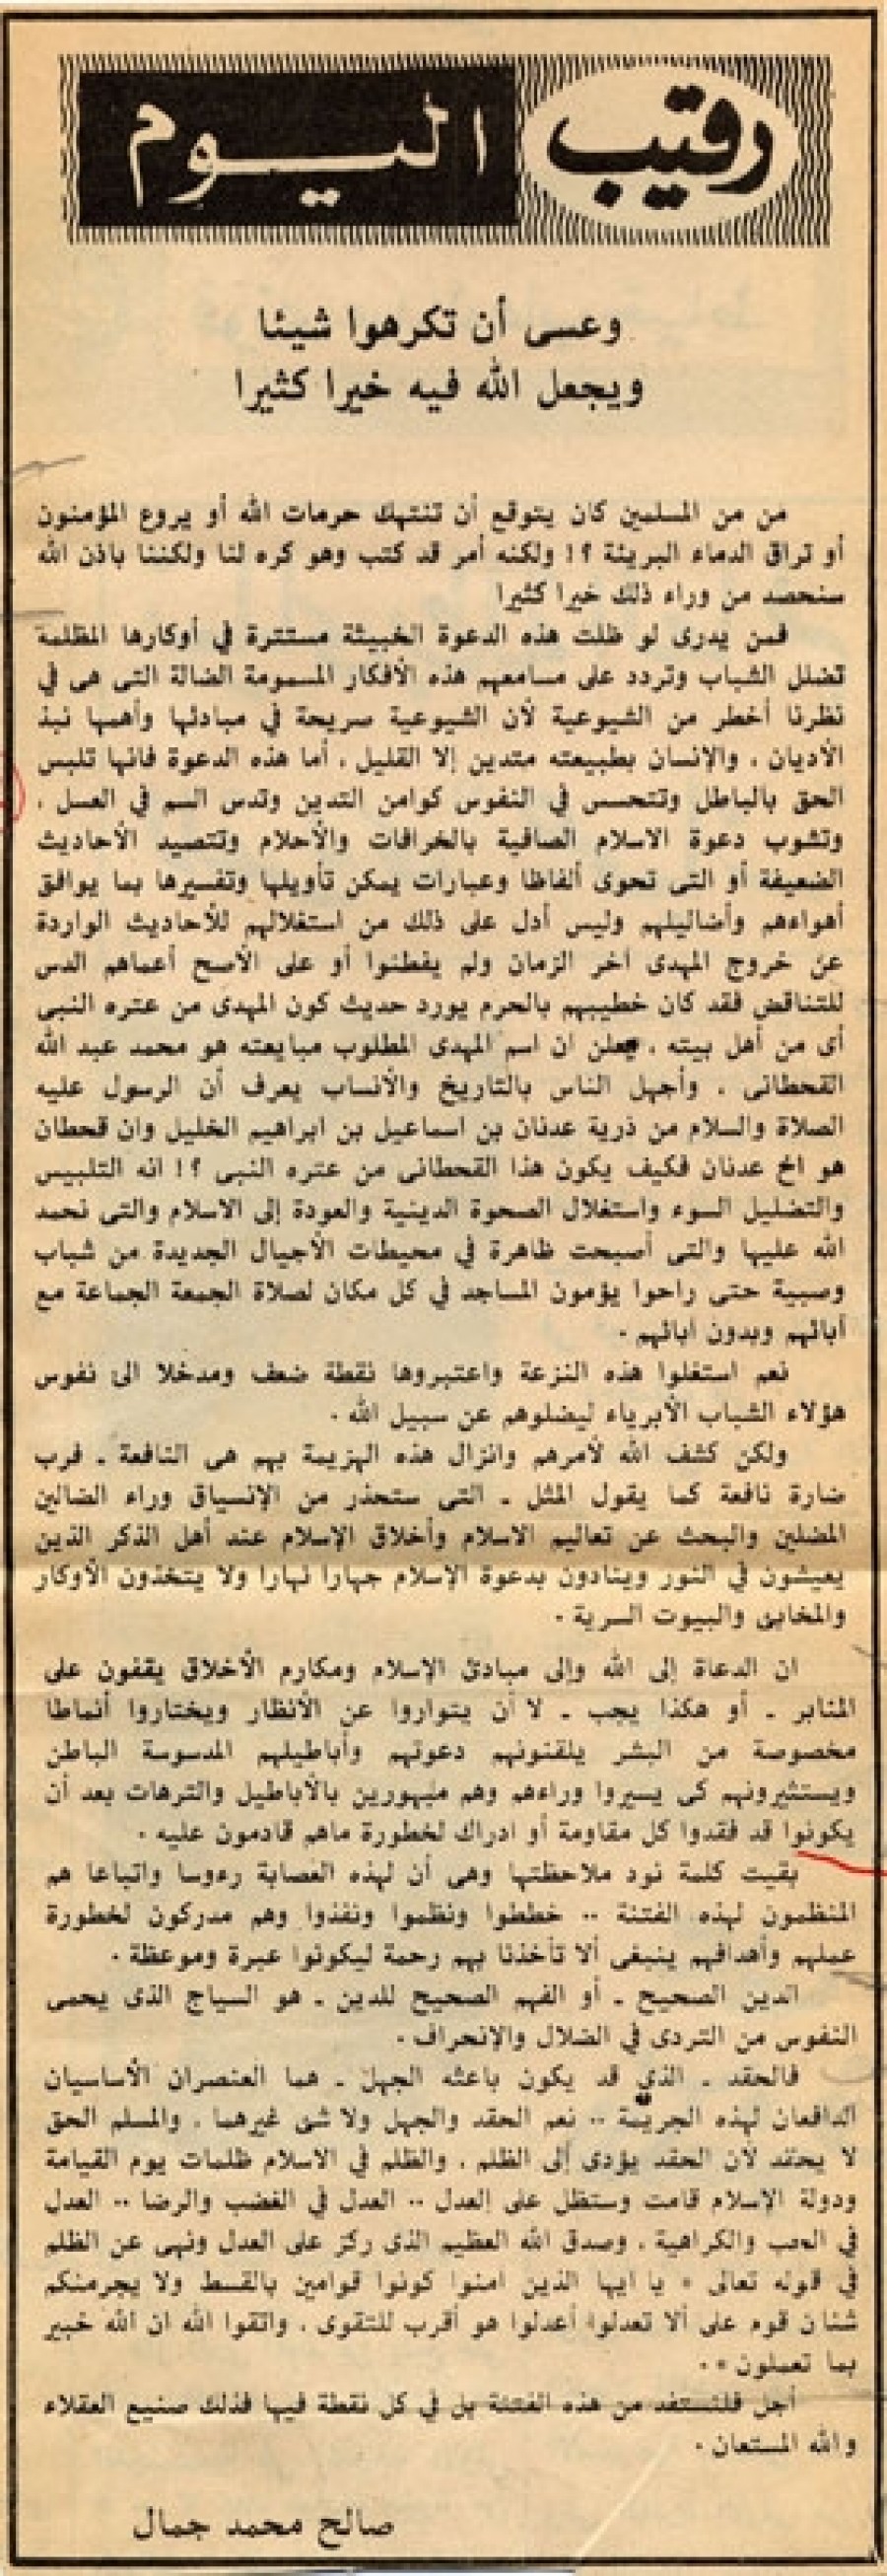 رقيب اليوم
وعسى أن تكرهوا شيئا
ويجعل الله فيه خيرا كثيرا
من من المسلمين كان يتوقع أن تنتهك حرمات الله أو يروع المؤمنون
أو تراق الدماء البريئة ؟! ولكنه أمر قد كتب وهو كره لنا ولكننا باذن الله
سنحصد من وراء ذلك خيرا كثيرا
فمن يدرى لو ظلت هذه الدعوة الخبيثة مستترة في أوكارها المظلمة
تضلل الشباب وتردد على مسامعهم هذه الأفكار المسمومة الضالة التى هى في
نظرنا أخطر من الشيوعية لأن الشيوعية صريحة في مبادئها وأهمها نبذ
الأديان . والإنسان بطبيعته متدين إلا القليل . أما هذه الدعوة فانها تلبس
الحق بالباطل وتتحسس في النفوس كوامن التدين وتدس السم في العسل .
وتشوب دعوة الاسلام الصافية بالخرافات والأحلام وتتصيد الأحاديث
الضعيفة أو التى تحوى ألفاظا وعبارات يمكن تأويلها وتفسيرها بما يوافق
أهواءهم وأضاليلهم وليس أدل على ذلك من استغلالهم للأحاديث الواردة
عن خروج المهدى آخر الزمان ولم يفطنوا أو على الأصح أعماهم الدس
للتناقض فقد كان خطيبهم بالحرم يورد حديث كون المهدى من عتره النبى
أى من أهل بيته . يعلن ان اسم المهدى المطلوب مبايعته هو محمد عبد الله
القحطانى . وأجهل الناس بالتاريخ والأنساب يعرف أن الرسول عليه
الصلاة والسلام من ذرية عدنان بن اسماعيل بن ابراهيم الخليل وان قحطان
هو اخ عدنان فكيف يكون هذا القحطانى من عتره النبى ؟! انه التلبيس
والتضليل السوء واستغلال الصحوة الدينية والعودة إلى الاسلام والتى نحمد
الله عليها والتى أصبحت ظاهرة في محيطات الأجيال الجديدة من شباب
وصبية حتى راحوا يؤمون المساجد في كل مكان لصلاة الجمعة الجماعة مع
آبائهم وبدون ابائهم .
نعم استغلوا هذه النزعة واعتبروها نقطة ضعف ومدخلا الى نفوس
هؤلاء الشباب الأبرياء ليضلوهم عن سبيل الله .
ولكن كشف الله لأمرهم وانزال هذه الهزيمة بهم هى النافعة ـ فرب
ضارة نافعة كما يقول المثل ـ التى ستحذر من الإنسياق وراء الضالين
المضلين والبحث عن تعاليم الاسلام وأخلاق الإسلام عند أهل الذكر الذين
يعيشون في النور وينادون بدعوة الإسلام جهارا نهارا ولا يتخذون الأوكار
والمخابئ والبيوت السرية .
ان الدعاة إلى الله وإلى مبادئ الإسلام ومكارم الأخلاق يقفون على
المنابر ـ أو هكذا يجب ـ لا أن يتواروا عن الأنظار ويختاروا أنماطا
مخصوصة من البشر يلقنونهم دعوتهم وأباطيلهم المدسوسة الباطن
ويستثيرونهم كى يسيروا وراءهم وهم مبهورين بالأباطيل والترهات بعد أن
يكونوا قد فقدوا كل مقاومة أو ادراك لخطورة ماهم قادمون عليه .
بقيت كلمة نود ملاحظتها وهى أن لهذه العصابة رءوسا واتباعا هم
المنظمون لهذه الفتنة .. خططوا ونظموا ونفذوا وهم مدركون لخطورة
عملهم وأهدافهم ينبغى ألا تأخذنا بهم رحمة ليكونوا عبرة وموعظة .
الدين الصحيح ـ أو الفهم الصحيح للدين ـ هو السياج الذى يحمى
النفوس من التردى في الضلال والإنحراف .
فالحقد ـ الذي قد يكون باعثه الجهل ـ هما العنصران الأساسيان
الدافعان لهذه الجريمة .. نعم الحقد والجهل ولا شئ غيرهما . والمسلم الحق
لا يحقد لان الحقد يؤدى إلى الظلم . والظلم في الاسلام ظلمات يوم القيامة
ودولة الإسلام قامت وستظل على العدل .. العدل في الغضب والرضا .. العدل
في الحب والكراهية . وصدق الله العظيم الذى ركز على العدل ونهى عن الظلم
في قوله تعالى « يا ايها الذين امنوا كونوا قوامين بالقسط ولا يجرمنكم
شنان قوم على ألا تعدلوا أعدلوا هو أقرب للتقوى . واتقوا الله ان الله خبير
بما تعملون » .
أجل فلنستفد من هذه الفتنة بل في كل نقطة فيها فذلك صنيع العقلاء
والله المستعان .
صالح محمد جمال